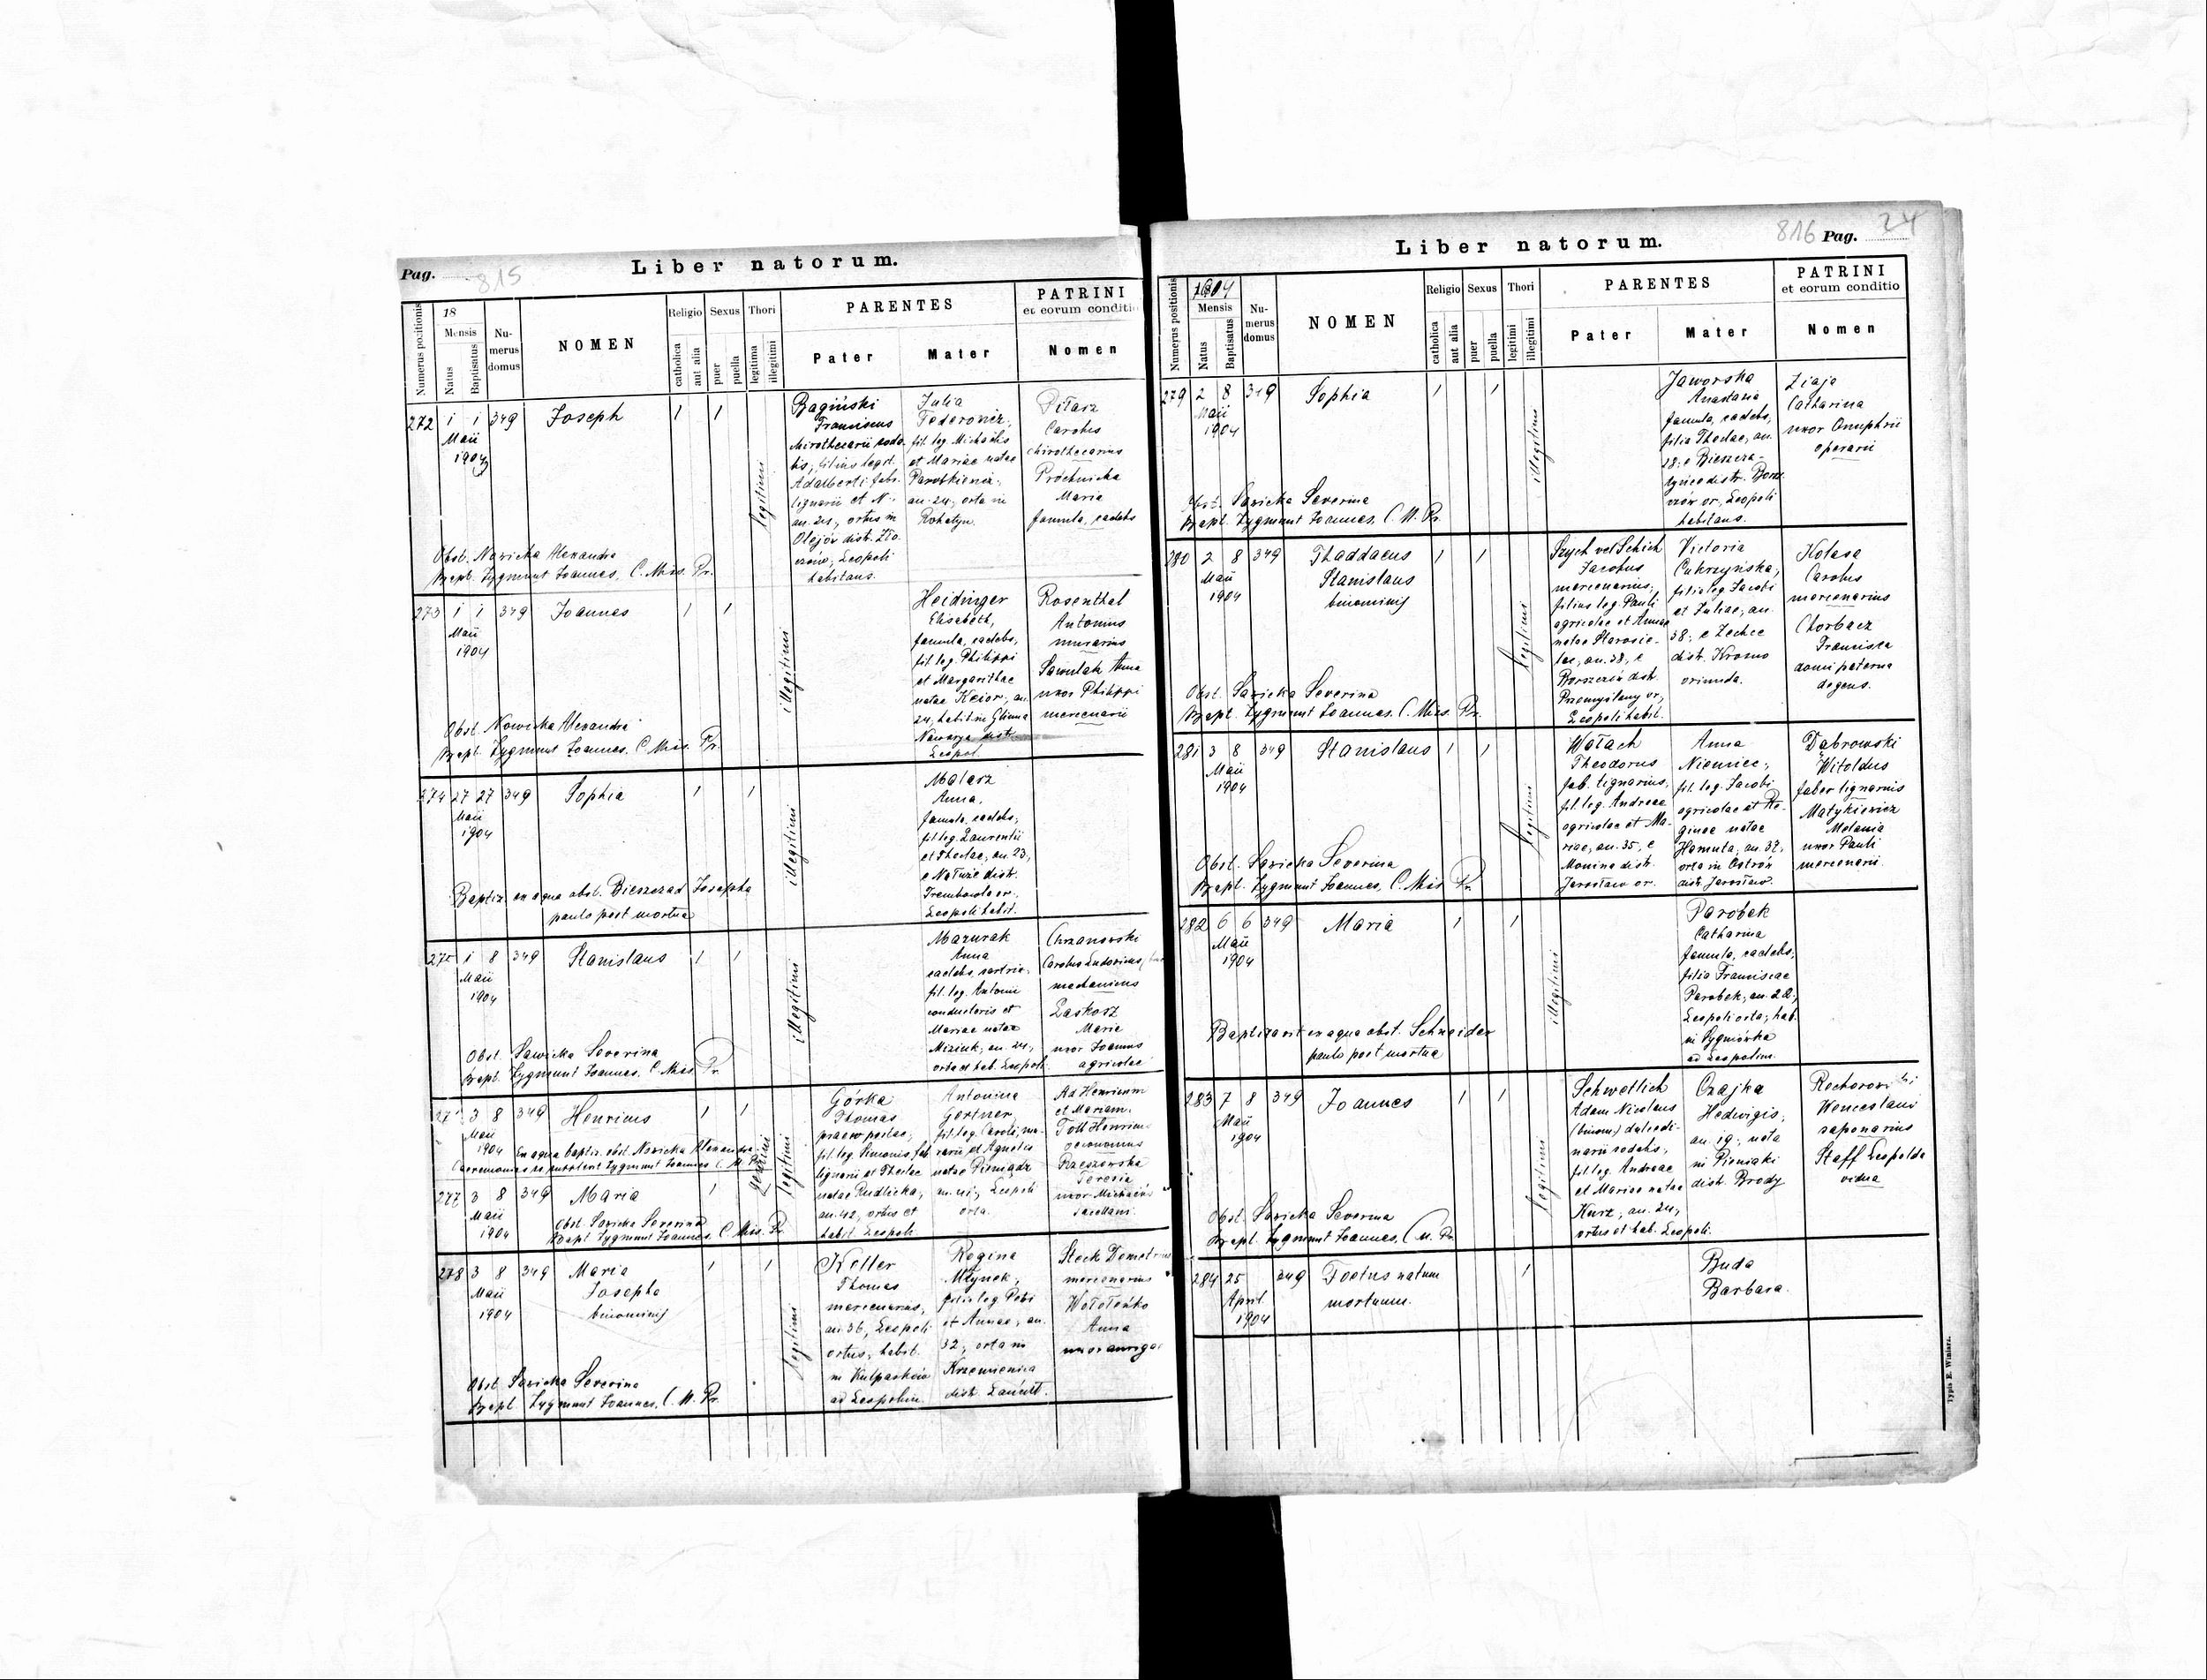 Pag. 815
Liber natorum.
Numerus positionis
18
Mensis
Natus
Baptisatus
Nu-
merus
domus
NOMEN
Religio
catholica
aut alia
Sexus
puer
puella
Thori
legitima
illegitimi
PARENTES
Pater
Mater
PATRINI
et eorum conditio
Nomen
272 1 1 349 Joseph 1 1
Maii
1904
legitimi
Bagiński
Franciscus
Adalberti fabr.
lignarii et N.
an. 24, ortus in
Olejów distr. Zło-
czów, Leopoli
habitans.
Julia
Fedorowicz,
fil. leg. Michaëlis
et Mariae natae
an. 24, orta in
Rohatyn.
Pilarz
Carolus
chirothecarius
Próchnicka
Maria
famula, caelebs
Obst. Nowicka Alexandra
Bapt. Zygmunt Joannes, C. Miss. Pr.
273 1 1 349 Joannes 1 1
Maii
1904
illegitimi
Heidinger
Elisabeth,
famula, caelebs,
fil. leg. Philippi
et Margarithae
natae Keior, an.
24, habit. in Glinna
Nawarya distr.
Leopol.
Rosenthal
Antonius
murarius
Sawulak Anna
uxor Philippi
mercenarii
Obst. Nowicka Alexandra
Bapt. Zygmunt Joannes, C. Miss. Pr.
274 27 27 349 Sophia 1 1
Maii
1904
illegitimi
Malarz
Anna,
famula, caelebs,
fil. leg. Laurentii
et Theclae, an. 23,
e Nałuże distr.
Trembowla or.
Leopoli habit.
Baptiz. ex aqua obst. Bieszczad Josepha
paulo post mortua
275 1 8 349 Stanislaus 1 1
Maii
1904
illegitimi
Mazurak
Anna
caelebs, sartrix,
fil. leg. Antonii
conductoris et
Mariae natae
Miziuk, an. 24,
orta et hab. Leopoli
Chrzanowski
Carolus Ludovicus
mechanicus
Laskosz
Maria
uxor Joannis
agricolae
Obst. Sawicka Severina
Bapt. Zygmunt Joannes, C. Miss. Pr.
3 8 349 Henricus 1 1
Maii
1904
Ex aqua baptiz. obst. Nowicka Alexandra
Caeremonias supplevit Zygmunt Joannes C. M. Pr.
gemini
legitimi
Górka
Thomas
fil. leg. Simonis, fab.
lignarii et Theclae
natae Rudlicka,
an. 42, ortus et
habit. Leopoli
Antonina
Gertner,
fil. leg. Caroli, mu-
rarii et Agnetis
natae Pieniądz
Leopoli
orta.
Ad Henricum
et Mariam.
Toll Henricus
oeconomus
Rzeszowska
Teresia
uxor Michaëlis
277 3 8 349 Maria 1
Maii
1904
Obst. Sawicka Severina
Bapt. Zygmunt Joannes, C. Miss. Pr.
278 3 8 349 Maria 1 1
Maii
1904
Josepha
binominis
legitimi
Koller
Thomas
mercenarius,
an. 36, Leopoli
ortus, habit.
in Kulparków
ad Leopolim.
Regina
Młynek,
filia leg. Petri
et Annae, an.
32, orta in
Krzemienica
distr. Łańcut.
Stock Demetrius
mercenarius
Wołoteńko
Anna
uxor aurigae
Obst. Sawicka Severina
Bapt. Zygmunt Joannes, C. M. Pr.
816 Pag. 24
Liber natorum.
Numerus positionis
1904
Mensis
Natus
Baptisatus
Nu-
merus
domus
NOMEN
Religio
catholica
aut alia
Sexus
puer
puella
Thori
legitimi
illegitimi
PARENTES
Pater
Mater
PATRINI
et eorum conditio
Nomen
279 2 8 349 Sophia 1 1
Maii
1904
illegitimi
Jaworska
Anastasia
famula, caelebs,
filia Theclae, an.
28, e Bieszcza-
distr. Borsz-
czów or., Leopoli
habitans.
Ziaja
Catharina
uxor Onuphrii
operarii
Obst. Sawicka Severina
Bapt. Zygmunt Joannes, C. M. Pr.
280 2 8 349 Thaddaeus 1 1
Maii
1904
Stanislaus
binominis
legitimi
Szych vel Schich
Jacobus
mercenarius,
filius leg. Pauli
agricolae et Annae
natae Starosie-
lec, an. 38, e
Borszczów distr.
Przemyślany or.,
Leopoli habit.
Victoria
Cukrzyńska,
filia leg. Jacobi
et Juliae, an.
38, e Zechce
distr. Krosno
oriunda.
Kolasa
Carolus
mercenarius
Chorbacz
Francisca
domi paterna
degens.
Obst. Sawicka Severina
Bapt. Zygmunt Joannes, C. Miss. Pr.
281 3 8 349 Stanislaus 1 1
Maii
1904
legitimi
Wołach
Theodorus
fab. lignarius,
fil. leg. Andreae
agricolae et Ma-
riae, an. 35, e
Monina distr.
Jarosław or.
Anna
Niemiec,
fil. leg. Jacobi
agricolae et Re-
ginae natae
Hamuta, an. 32,
orta in Ostrów
distr. Jarosław.
Dąbrowski
Witoldus
faber lignarius
Matykiewicz
Melania
uxor Pauli
mercenarii
Obst. Sawicka Severina
Bapt. Zygmunt Joannes, C. Miss. Pr.
282 6 6 349 Maria 1 1
Maii
1904
illegitimi
Parobek
Catharina
famula, caelebs,
filia Franciscae
Parobek, an. 22,
Leopoli orta, hab.
in Sygniówka
ad Leopolim.
Baptizavit ex aqua obst. Schneider
paulo post mortua
283 7 8 349 Joannes 1 1
Maii
1904
legitimi
Schwetlich
Adam Nicolaus
(binom.) dulcedi-
narii sodalis,
fil. leg. Andreae
et Mariae natae
Kurz, an. 24,
ortus et hab. Leopoli.
Czajka
Hedwigis,
an. 19, nata
in Pieniaki
distr. Brody
Wenceslaus
saponarius
Staff Leopolda
vidua
Obst. Sawicka Severina
Bapt. Zygmunt Joannes, C. M. Pr.
284 25 349 Foetus natum 1
April
1904
mortuum.
Buda
Barbara.
Typis E. Winiarz.